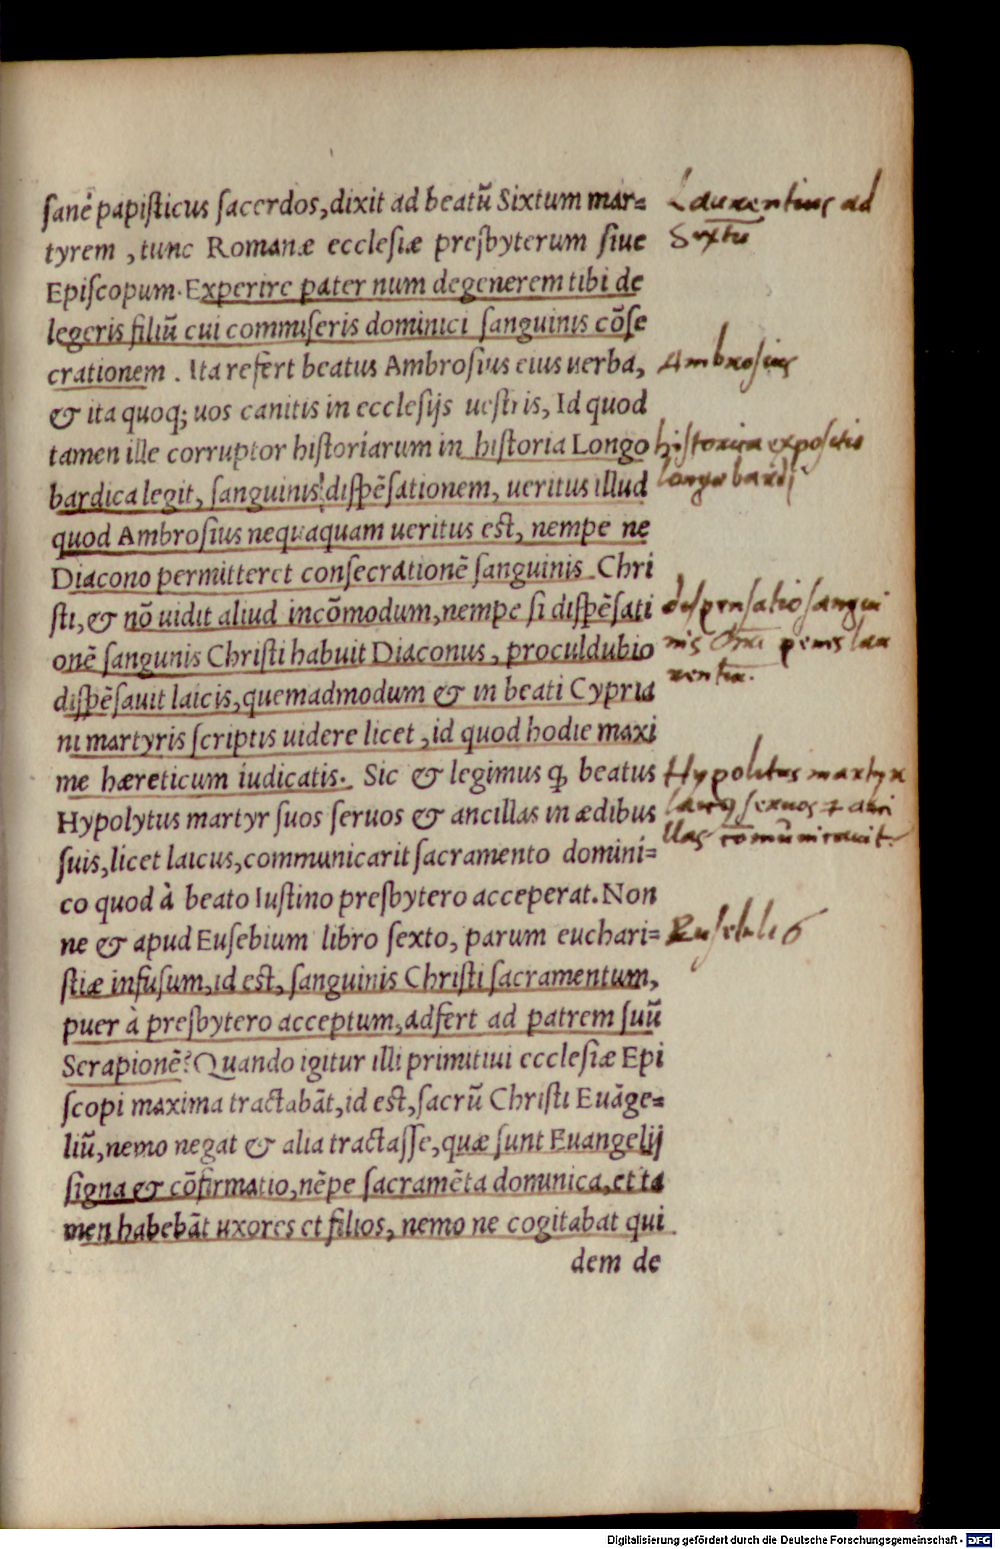 sanè papisticus sacerdos, dixit ad beatũ Sixtum mar=
tyrem , tunc Romanæ ecclesiæ presbyterum siue
Episcopum. Experire pater num degenerem tibi de
legeris filiũ cui commiseris dominici sanguinis cõse
crationem . Ita refert beatus Ambrosius eius uerba,
& ita quoq; uos canitis in ecclesijs uestris, Id quod
tamen ille corruptor historiarum in historia Longo
bardica legit, sanguinis dispẽsationem, ueritus illud
quod Ambrosius nequaquam ueritus est, nempe ne
Diacono permitteret consecrationẽ sanguinis Chri
sti, & nõ uidit aliud incõmodum, nempe si dispẽsati
onẽ sangunis Christi habuit Diaconus , proculdubio
dispẽsauit laicis, quemadmodum & in beati Cypria
ni martyris scriptis uidere licet , id quod hodie maxi
me hæreticum iudicatis. Sic & legimus ꝙ beatus
Hypolytus martyr suos seruos & ancillas in ædibus
suis, licet laicus, communicarit sacramento domini=
co quod à beato Iustino presbytero acceperat. Non
ne & apud Eusebium libro sexto, parum euchari=
stiæ infusum, id est, sanguinis Christi sacramentum,
puer à presbytero acceptum, adfert ad patrem suũ
Serapionẽ? Quando igitur illi primitiui ecclesiæ Epi
scopi maxima tractabãt, id est, sacrũ Christi Euãge=
liũ, nemo negat & alia tractasse, quæ sunt Euangelij
signa & cõfirmatio, nẽpe sacramẽta dominica, et ta
men habebãt uxores et filios, nemo ne cogitabat qui
dem de
Laurentius ad
Sixtũ
Ambrosius
historica expositio
longobardi
dispensatio sangui
nis penes lau
rentiũ.
Hypolitus martyr
seruos & anci
llas cõmunicauit
Euseb. li 6
Digitalisierung gefördert durch die Deutsche Forschungsgemeinschaft - DFG